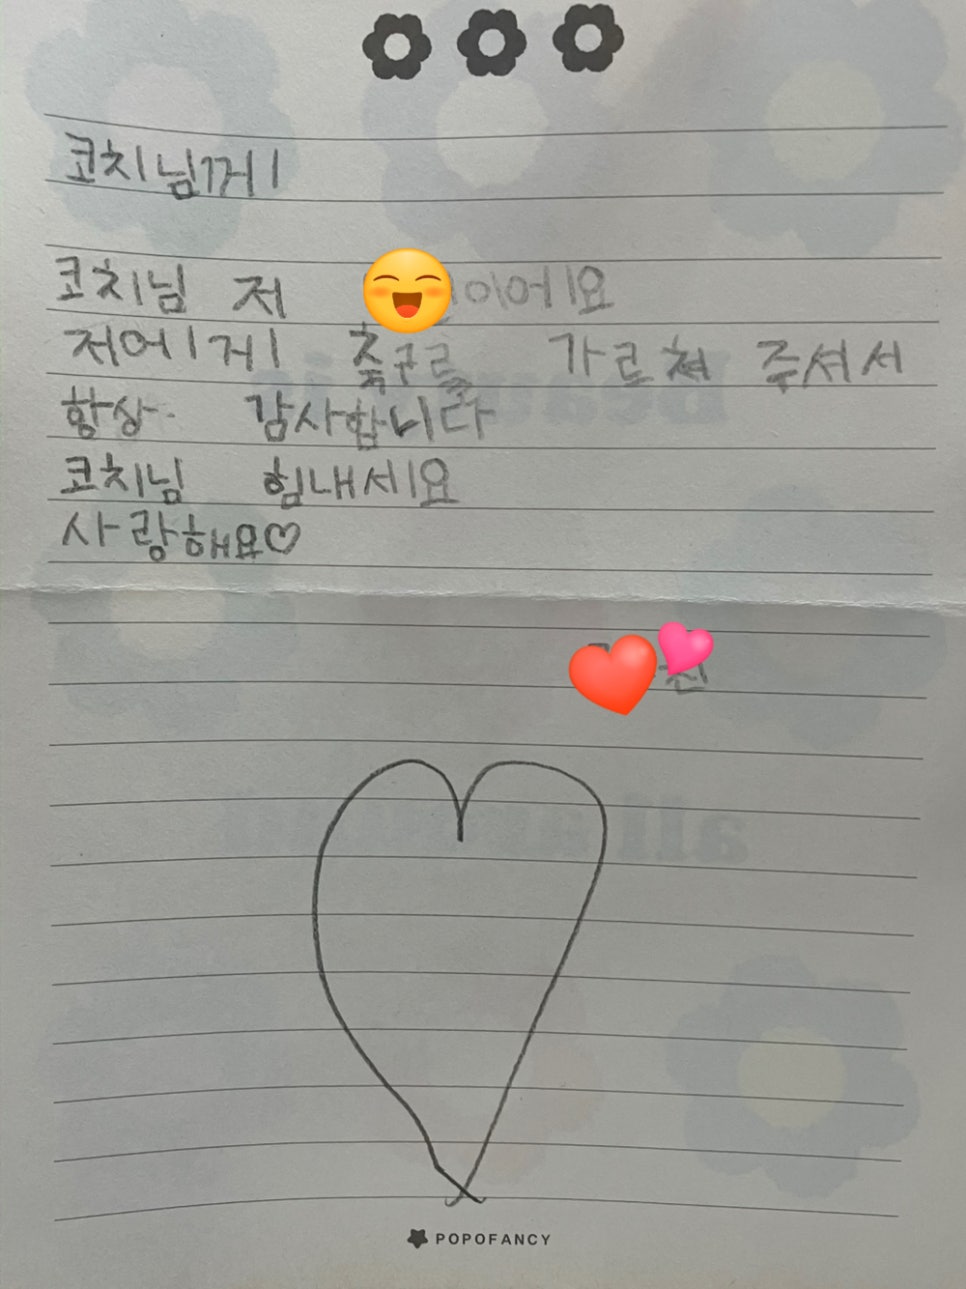 코치님께
코치님 저 이에요
저에게 축구를 가르쳐 주셔서
항상 감사합니다
코치님 힘내세요
사랑해요♡
POPOFANCY